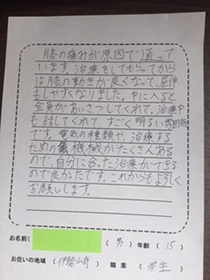 膝の痛みが原因で通って
います。治療をしてもらってから
は膝の動きが良くなって、屈伸
もしやすくなりました。中に入ると
全員があいさつしてくれて、治療中
も話してくれて、すごく明るい雰囲気
です。電気の種類や治療する
ための機械がたくさんある
ので、自分に合った治療ができる
ので良かったです。これからも宜しく
お願いします。
お名前( ) (男) 年齢(15)
お住いの地域(伊勢崎) 職業(学生)